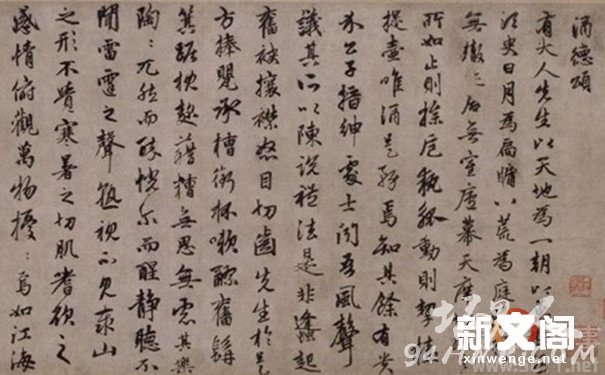 酒德頌
有大人先生以天地為一朝以
須臾日月為扃牖八荒為庭
無轍跡居無室廬幕天席
所如止則操卮執觚動則挈榼
提壺唯酒是務焉知其餘有貴
介公子搢紳處士聞吾風聲
議其所以陳說禮法是非蠭起
奮袂攘襟怒目切齒先生於是
方捧甖承槽銜杯漱醪奮髯
箕踞枕麴藉糟無思無慮其樂
陶：兀然而醉恍爾而醒靜聽不
聞雷霆之聲熟視不見泰山
之形不覺寒暑之切肌嗜欲之
感情俯觀萬物擾：焉如江海
新文阁
www.xinwenge.net